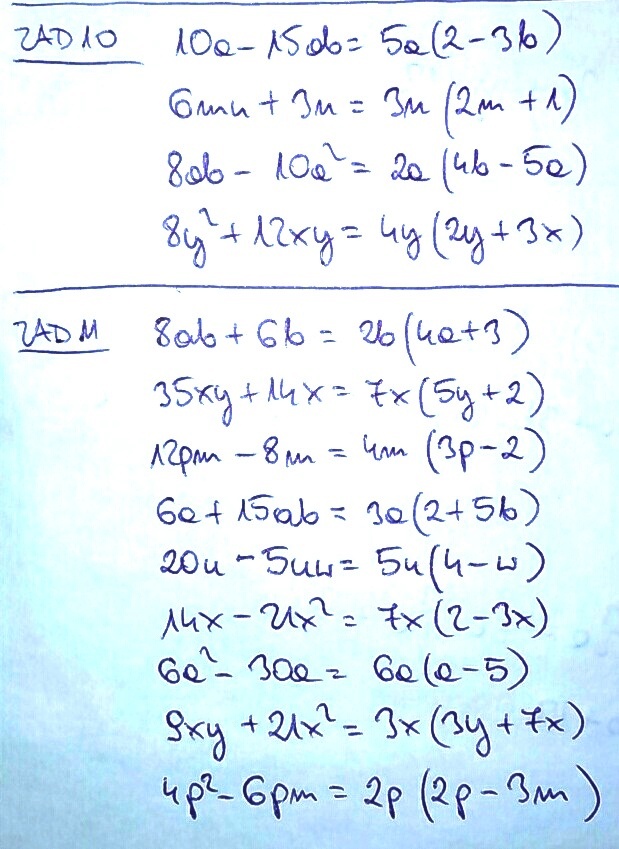 ZAD 10 10a - 15ab = 5a(2 - 3b)
6mn + 3n = 3n(2m + 1)
8ab - 10a² = 2a(4b - 5a)
8y² + 12xy = 4y(2y + 3x)
ZAD 11 8ab + 6b = 2b(4a + 3)
35xy + 14x = 7x(5y + 2)
12pm - 8m = 4m(3p - 2)
6a + 15ab = 3a(2 + 5b)
20u - 5uw = 5u(4 - w)
14x - 21x² = 7x(2 - 3x)
6a² - 30a = 6a(a - 5)
9xy + 21x² = 3x(3y + 7x)
4p² - 6pm = 2p(2p - 3m)